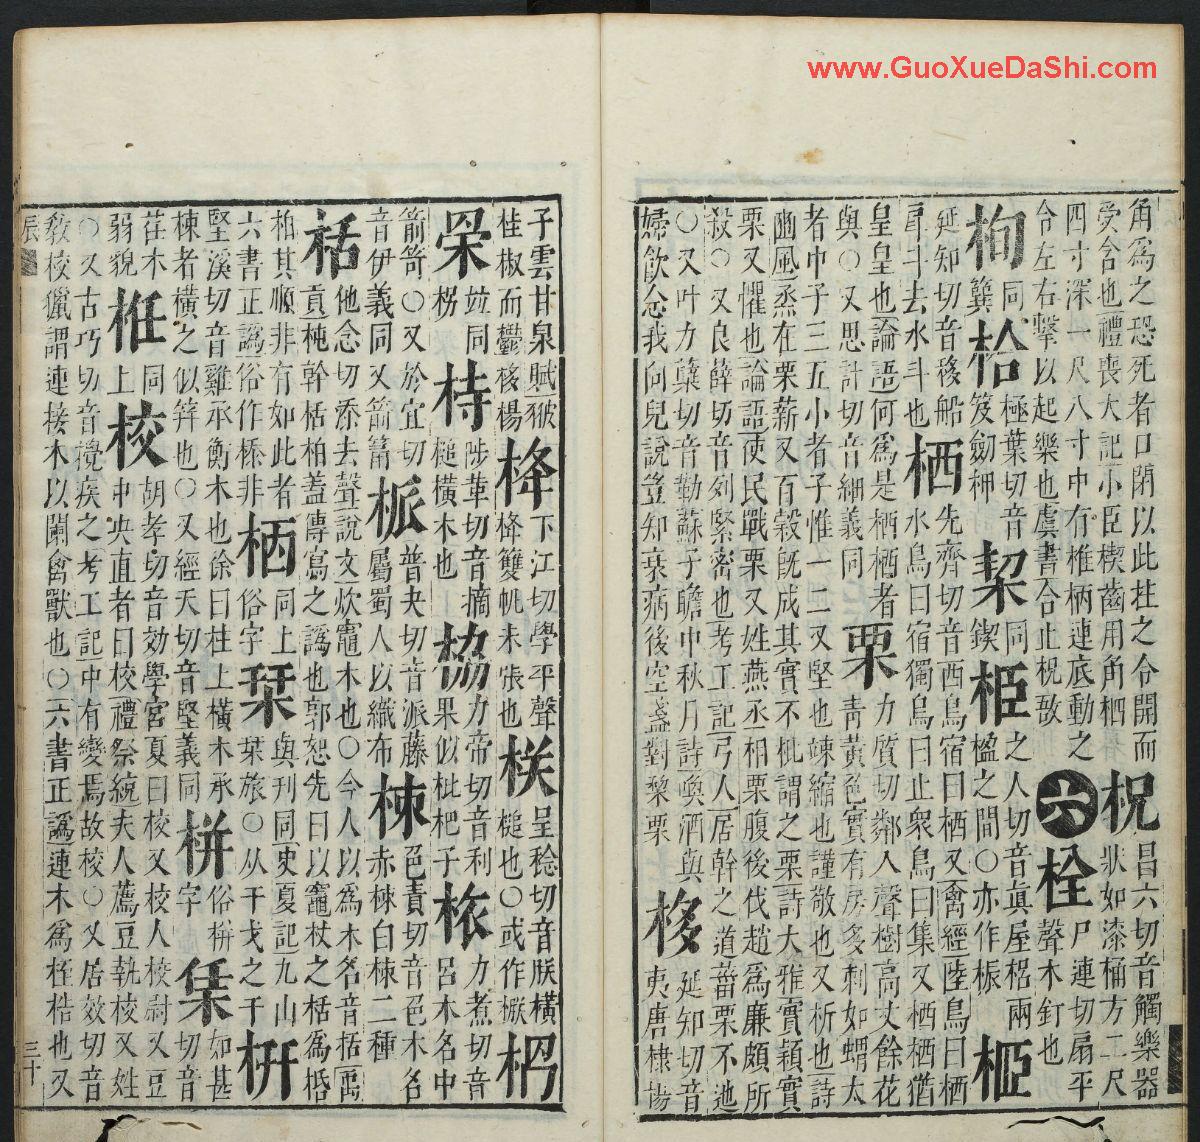 角爲之恐死者口閉以此拄之令開而
受含也禮喪大記小臣楔齒用角柶
柷
昌六切音觸樂器
狀如漆桶方二尺
四寸深一尺八寸中有椎柄連底動之
令左右擊以起樂也虞書合止柷敔
六
栓
尸連切扇平
聲木釘也
栒
同
簨
㭘
極葉切音
笈劒柙
栔
同
鍥
栕
之人切音眞屋梠兩
楹之間○亦作桭
延知切音移船
戽斗去水斗也
栖
先齊切音西鳥宿曰栖又禽經陸鳥曰栖
水鳥曰宿獨鳥曰止衆鳥曰集又栖栖猶
皇皇也論語何爲是栖栖者
與○又思計切音細義同
栗
力質切鄰入聲樹高丈餘花
靑黃色實有房多刺如蝟大
者中子三五小者子惟一二又堅也竦縮也謹敬也又析也詩
豳風烝在栗薪又百穀旣成其實不秕謂之栗詩大雅實穎實
栗又懼也論語使民戰栗又姓燕丞相栗腹後伐趙爲廉頗所
殺○又良薛切音列緊密也考工記弓人居幹之道菑栗不迤
○又叶力蘗切音勒蘇子瞻中秋月詩喚酒與
婦飮念我向兒說豈知衰病後空盞對棃栗
栘
延知切音
夷唐棣揚
子雲甘泉賦
桂椒而鬱栘楊
栙
下江切學平聲
栙雙帆未張也
栚
呈稔切音朕橫
槌也○或作
竝同
㭙
陟革切音摘
槌橫木也
栛
力帝切音利
果似枇杷子
㭚
力煮切音
呂木名中
箭笴○又於宜切
音伊義同又箭筩
㭛
普夬切音派藤
屬蜀人以織布
栜
色責切音色木名
赤栜白栜二種
栝
他念切添去聲說文炊竈木也○今人以爲木名音栝禹
貢杶幹栝柏蓋傳寫之譌也郭恕先曰以竈杖之栝爲栝
柏其順非有如此者
六書正譌俗作㮇非
栖
同上
俗字
栞
與刊同史夏記九山
栞旅○从干戈之干
枅
堅溪切音雞承衡木也徐曰柱上橫木承
棟者橫之似筓也○又經天切音堅義同
栟
俗栟
字
栠
如甚切音
荏木
弱貌
栣
同
上
校
胡孝切音效學宮夏曰校又校人校尉又豆
中央直者曰校禮祭統夫人薦豆執校又姓
○又古巧切音攪疾之考工記中有變焉故校○又居效切音
敎校獵謂連接木以闌禽獸也○六書正譌連木爲桎梏也又
辰
三十
www.GuoXueDaShi.com